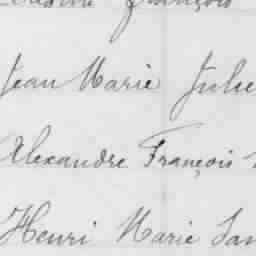 François
Jean Marie Julie
Alexandre François
Henri Marie